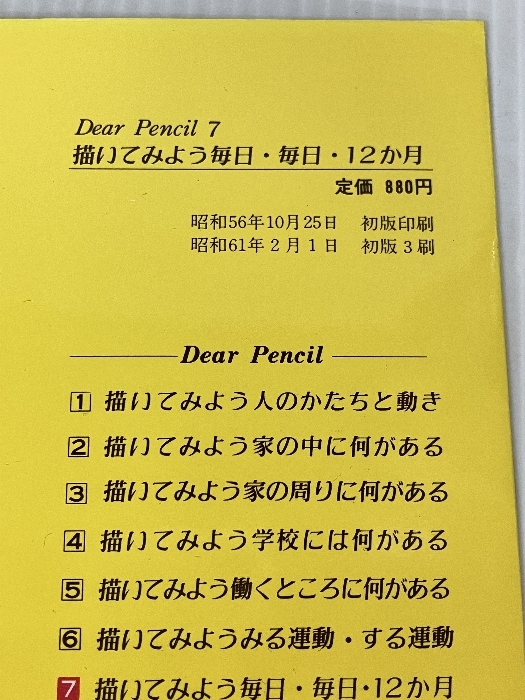 Dear Pencil 7
描いてみよう毎日・毎日・12か月
定価 880円
昭和56年10月25日 初版印刷
昭和61年2月1日 初版3刷
Dear Pencil
1 描いてみよう人のかたちと動き
2 描いてみよう家の中に何がある
3 描いてみよう家の周りに何がある
4 描いてみよう学校には何がある
5 描いてみよう働くところに何がある
6 描いてみようみる運動・する運動
7 描いてみよう毎日・毎日・12か月